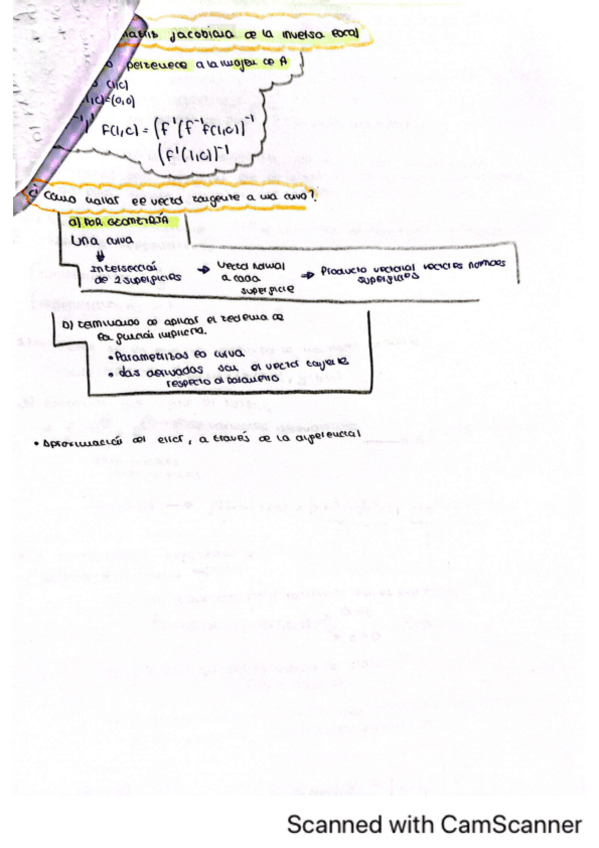 jacobiana de la inversa local
pertenece a la imagen de A
(1,c)
=(0,0)
f(1,0) = (f'(f⁻¹f(1,0))⁻¹
(f'(1,0))⁻¹
c) Cómo hallar el vector tangente a una curva?
a) POR GEOMETRÍA
Una curva
⇓
Intersección de 2 superficies → Vector normal a cada superficie → Producto vectorial vectores normales superficies
b) terminando de aplicar el teorema de
la función implícita.
• Parametrizas la curva
• das derivadas son el vector tangente
respecto al parámetro
• Aproximación del error, a través de la diferencial
Scanned with CamScanner